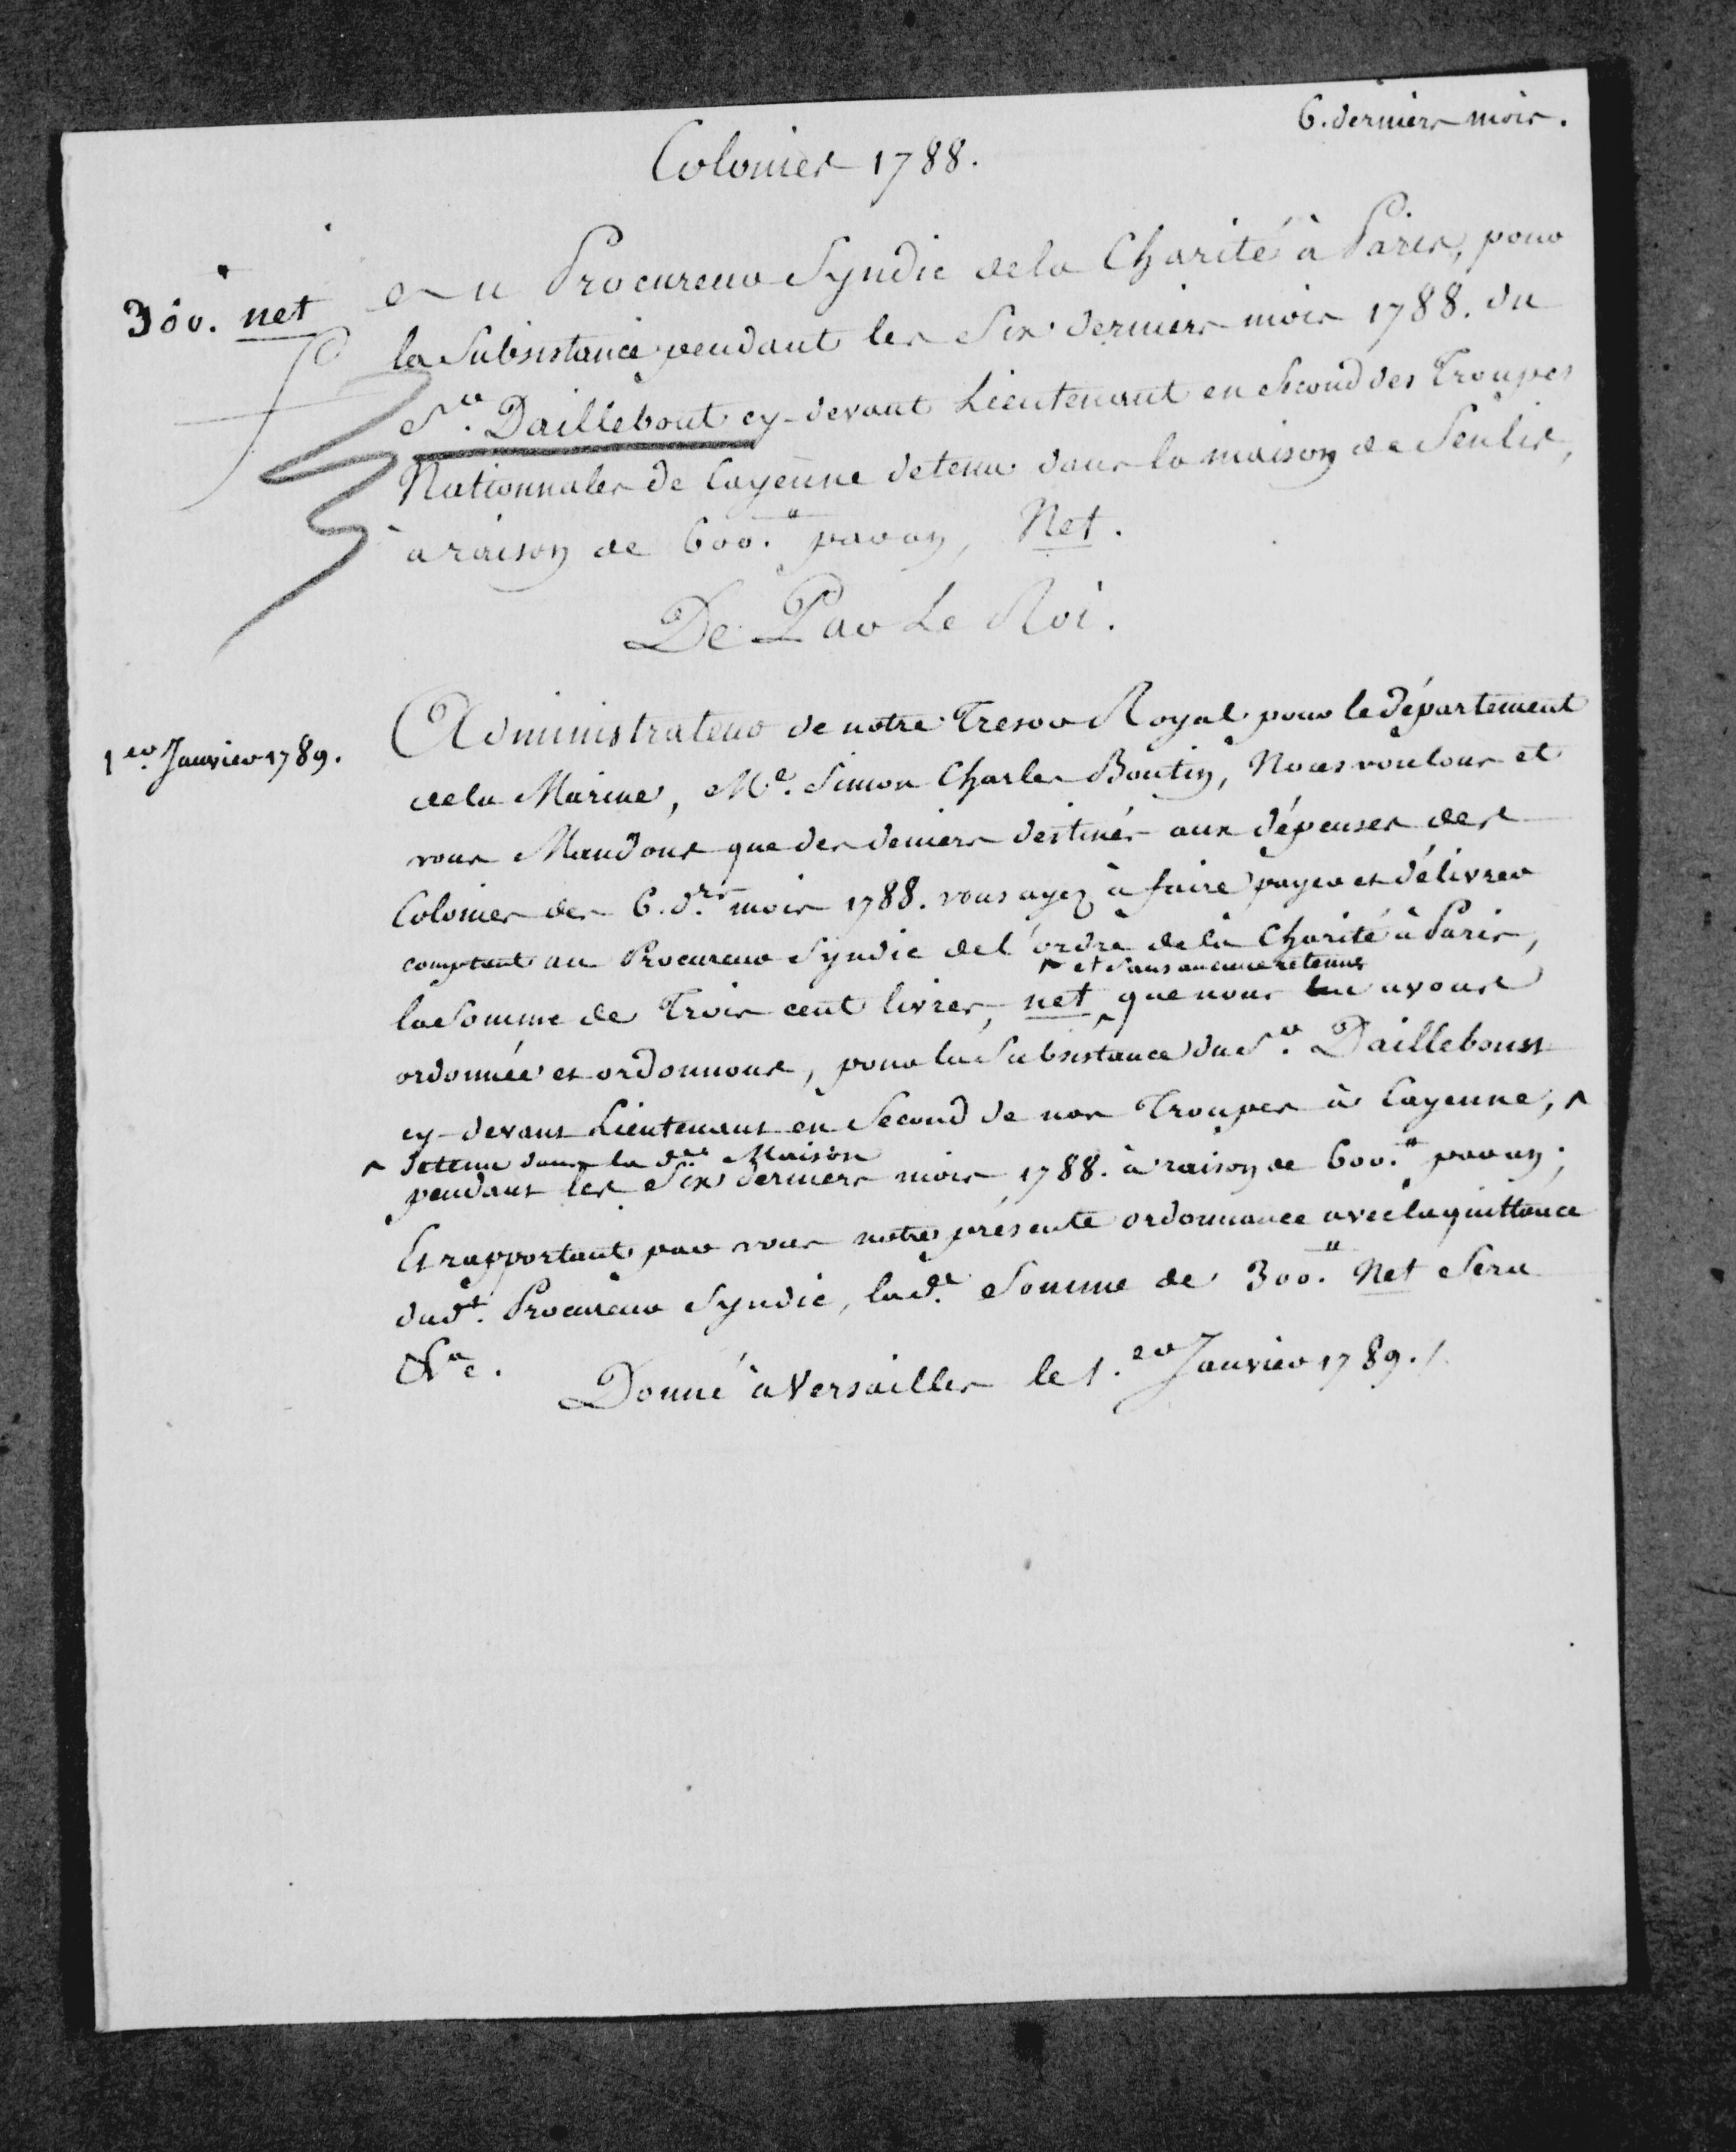 6. derniers mois.
Colonies 1788.
300.# net
Au Procureur Syndic de la Charité à Paris, pour
la Subsistance pendant les Six derniers mois 1788. du
Sr. Daillebout cy-devant Lieutenant en Second des Troupes
Nationnales de Cayenne detenu dans la maison de Senlis,
à raison de 600.# par an, Net.
De Par Le Roi.
1er. Janvier 1789.
Administrateur de notre Tresor Royal pour le département
de la Marine, Me. Simon Charles Boutin, Nous voulons et
vous Mandons que des deniers destinés aux dépenses des
Colonies des 6. drs. mois 1788. vous ayez à faire payer et délivrer
comptant au Procureur Syndic de l'ordre de la Charité à Paris,
^ et sans aucune retenue
la Somme de Trois cent livres, net ^ que nous lui avons
ordonnée et ordonnons, pour la Subsistance du Sr. Daillebout
cy-devant Lieutenant en Second de nos Troupes à Cayenne, ^
^ detenu dans la de. Maison
pendant les Six derniers mois 1788. à raison de 600.# par an;
Et rapportant par vous notre présente ordonnance avec la quittance
dudt. Procureur Syndic, lade. Somme de 300.# Net Sera
&ca.
Donné à Versailles le 1.er Janvier 1789./.